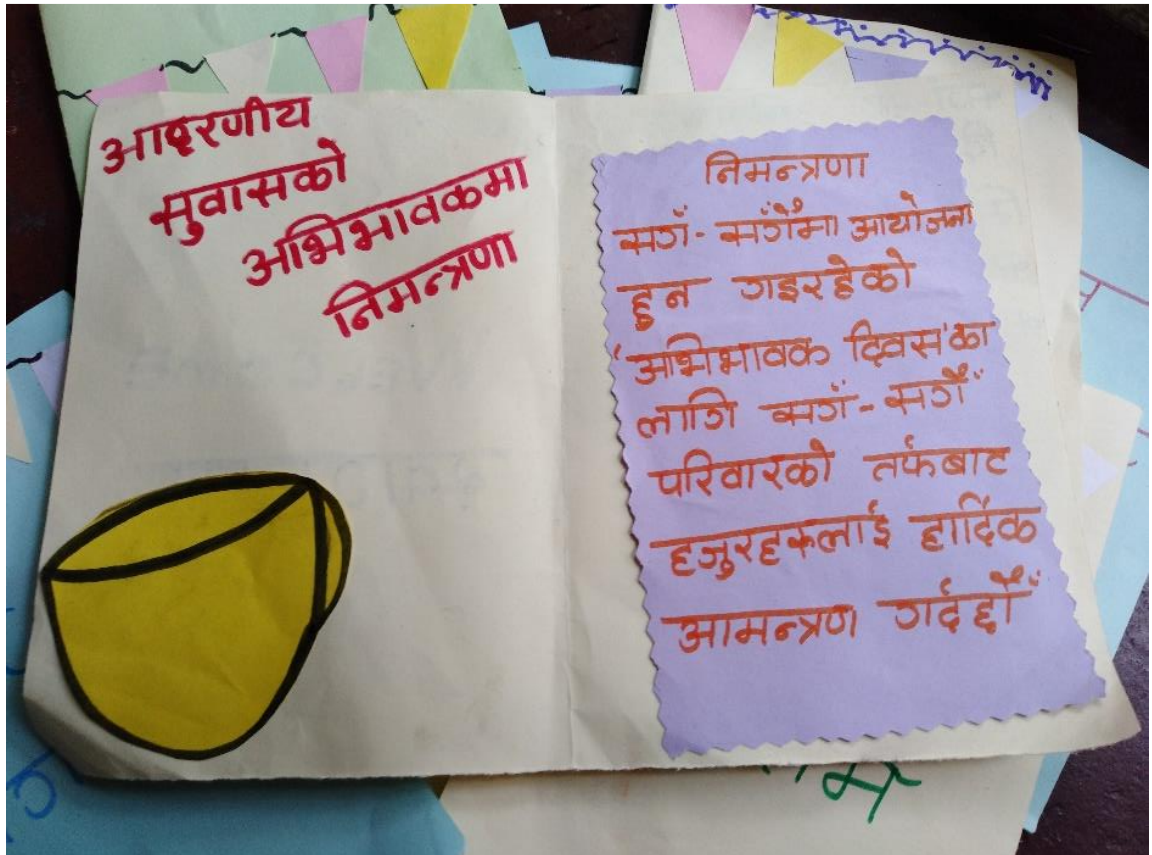 आदरणीय
सुवासको
अभिभावकमा
निमन्त्रणा
निमन्त्रणा
सगँ-सगँैमा आयोजना
हुन गइरहेको
'अभिभावक दिवस'का
लागि सगँ-सगँै
परिवारको तर्फबाट
हजुरहरूलाई हार्दिक
आमन्त्रण गर्दछौँ